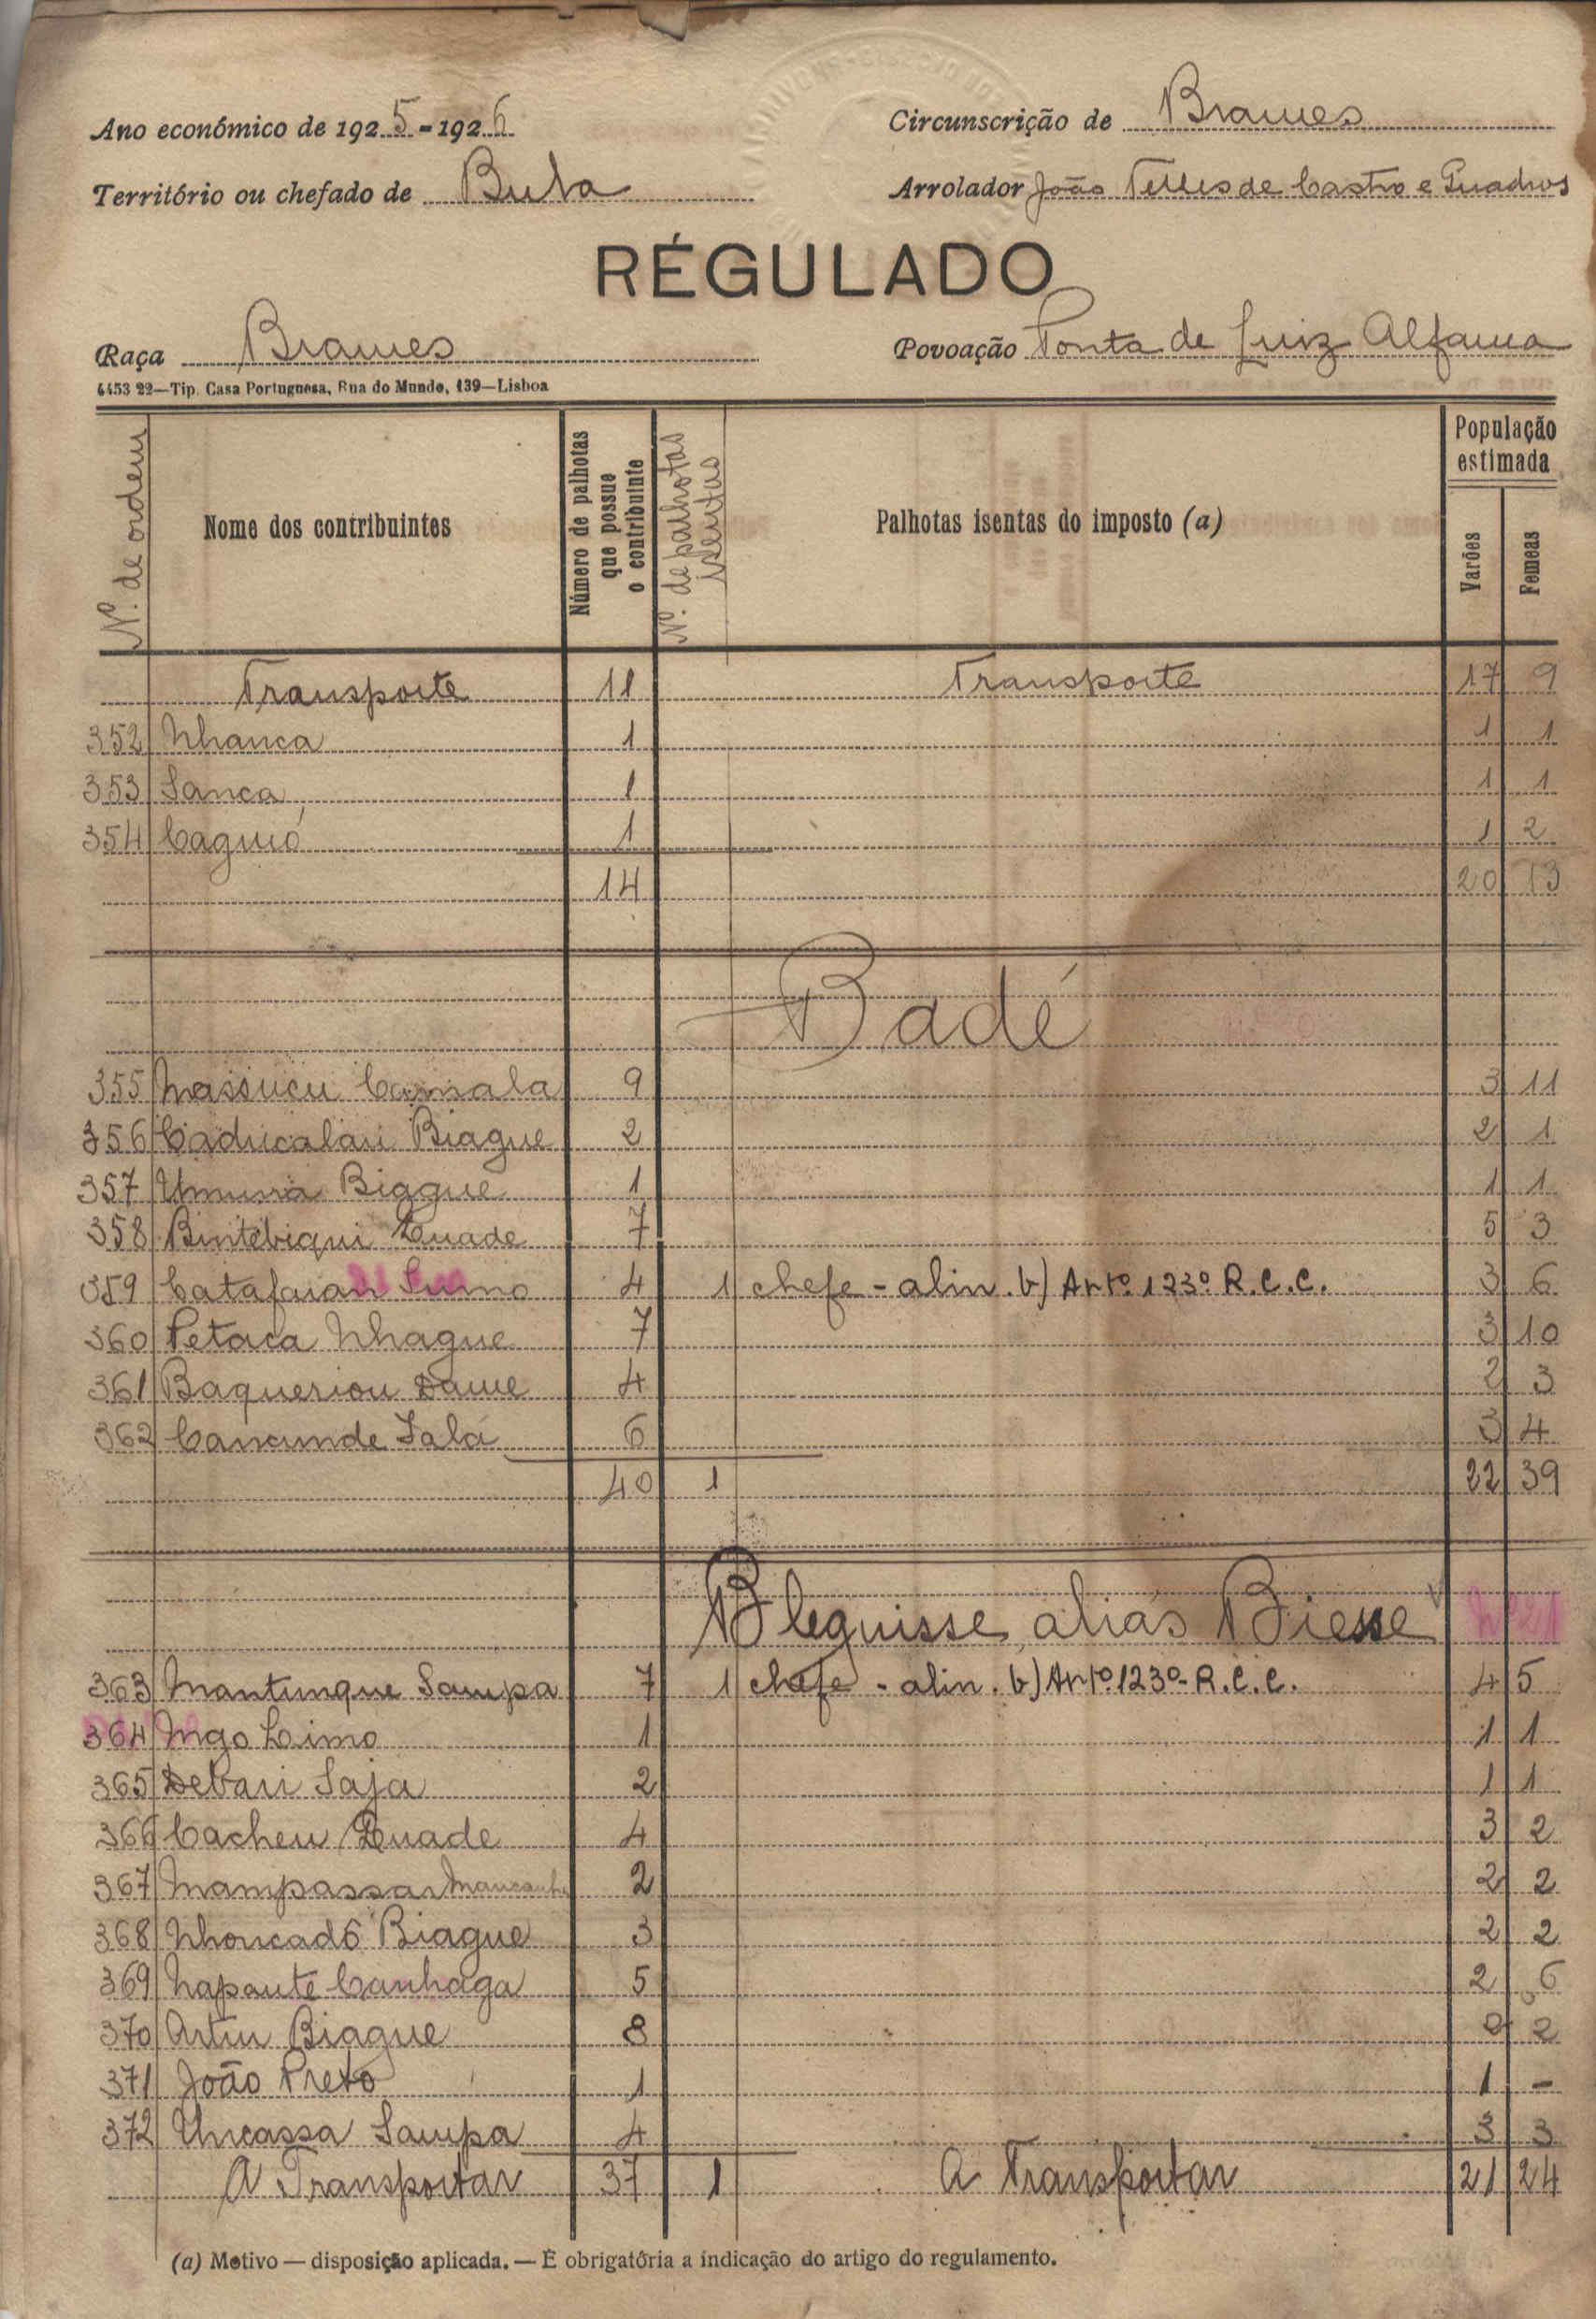 Ano económico de 1925-1926
Circunscrição de Brames
Território ou chefado de Bula
Arrolador João Telles de Castro e Quadros
RÉGULADO
Raça Brames
Povoação Ponta de Luiz Alfama
6453 22—Tip. Casa Portuguesa, Rua do Mundo, 139—Lisboa
Nº. de ordem
Nome dos contribuintes
Número de palhotas que possue o contribuinte
Nº. de palhotas isentas
Palhotas isentas do imposto (a)
População estimada
Varões
Femeas
Transporte 11 Transporte 17 9
352 Nhanca 1 1 1
353 Sanca 1 1 1
354 Cagmó 1 1 2
14 20 13
Badé
355 Massucu Camala 9 3 11
356 Caducalan Biague 2 2 1
357 Biague 1 1 1
358 Bintebiqui Quade 7 5 3
359 4 1 chefe - alin. b) Artº 123º R.C.C. 3 6
360 Petaca Nhague 7 3 10
361 Baqueriou Dame 4 2 3
362 Cancunde Salá 6 3 4
40 1 22 39
Bleguisse, aliás Biesse
363 Mantunque Sampa 7 1 chefe - alin. b) Artº 123º- R.C.C. 4 5
364 Ingo Limo 1 1 1
365 Debari Saja 2 1 1
366 Cacheu Quade 4 3 2
367 Mampassar 2 2 2
368 Nhoncadó Biague 3 2 2
369 Napaute Canhaga 5 2 6
370 Artur Biague 8 2 2
371 João Preto 1 1 -
372 Uncassa Sampa 4 3 3
A Transportar 37 1 A Transportar 21 24
(a) Motivo — disposição aplicada. — É obrigatória a indicação do artigo do regulamento.